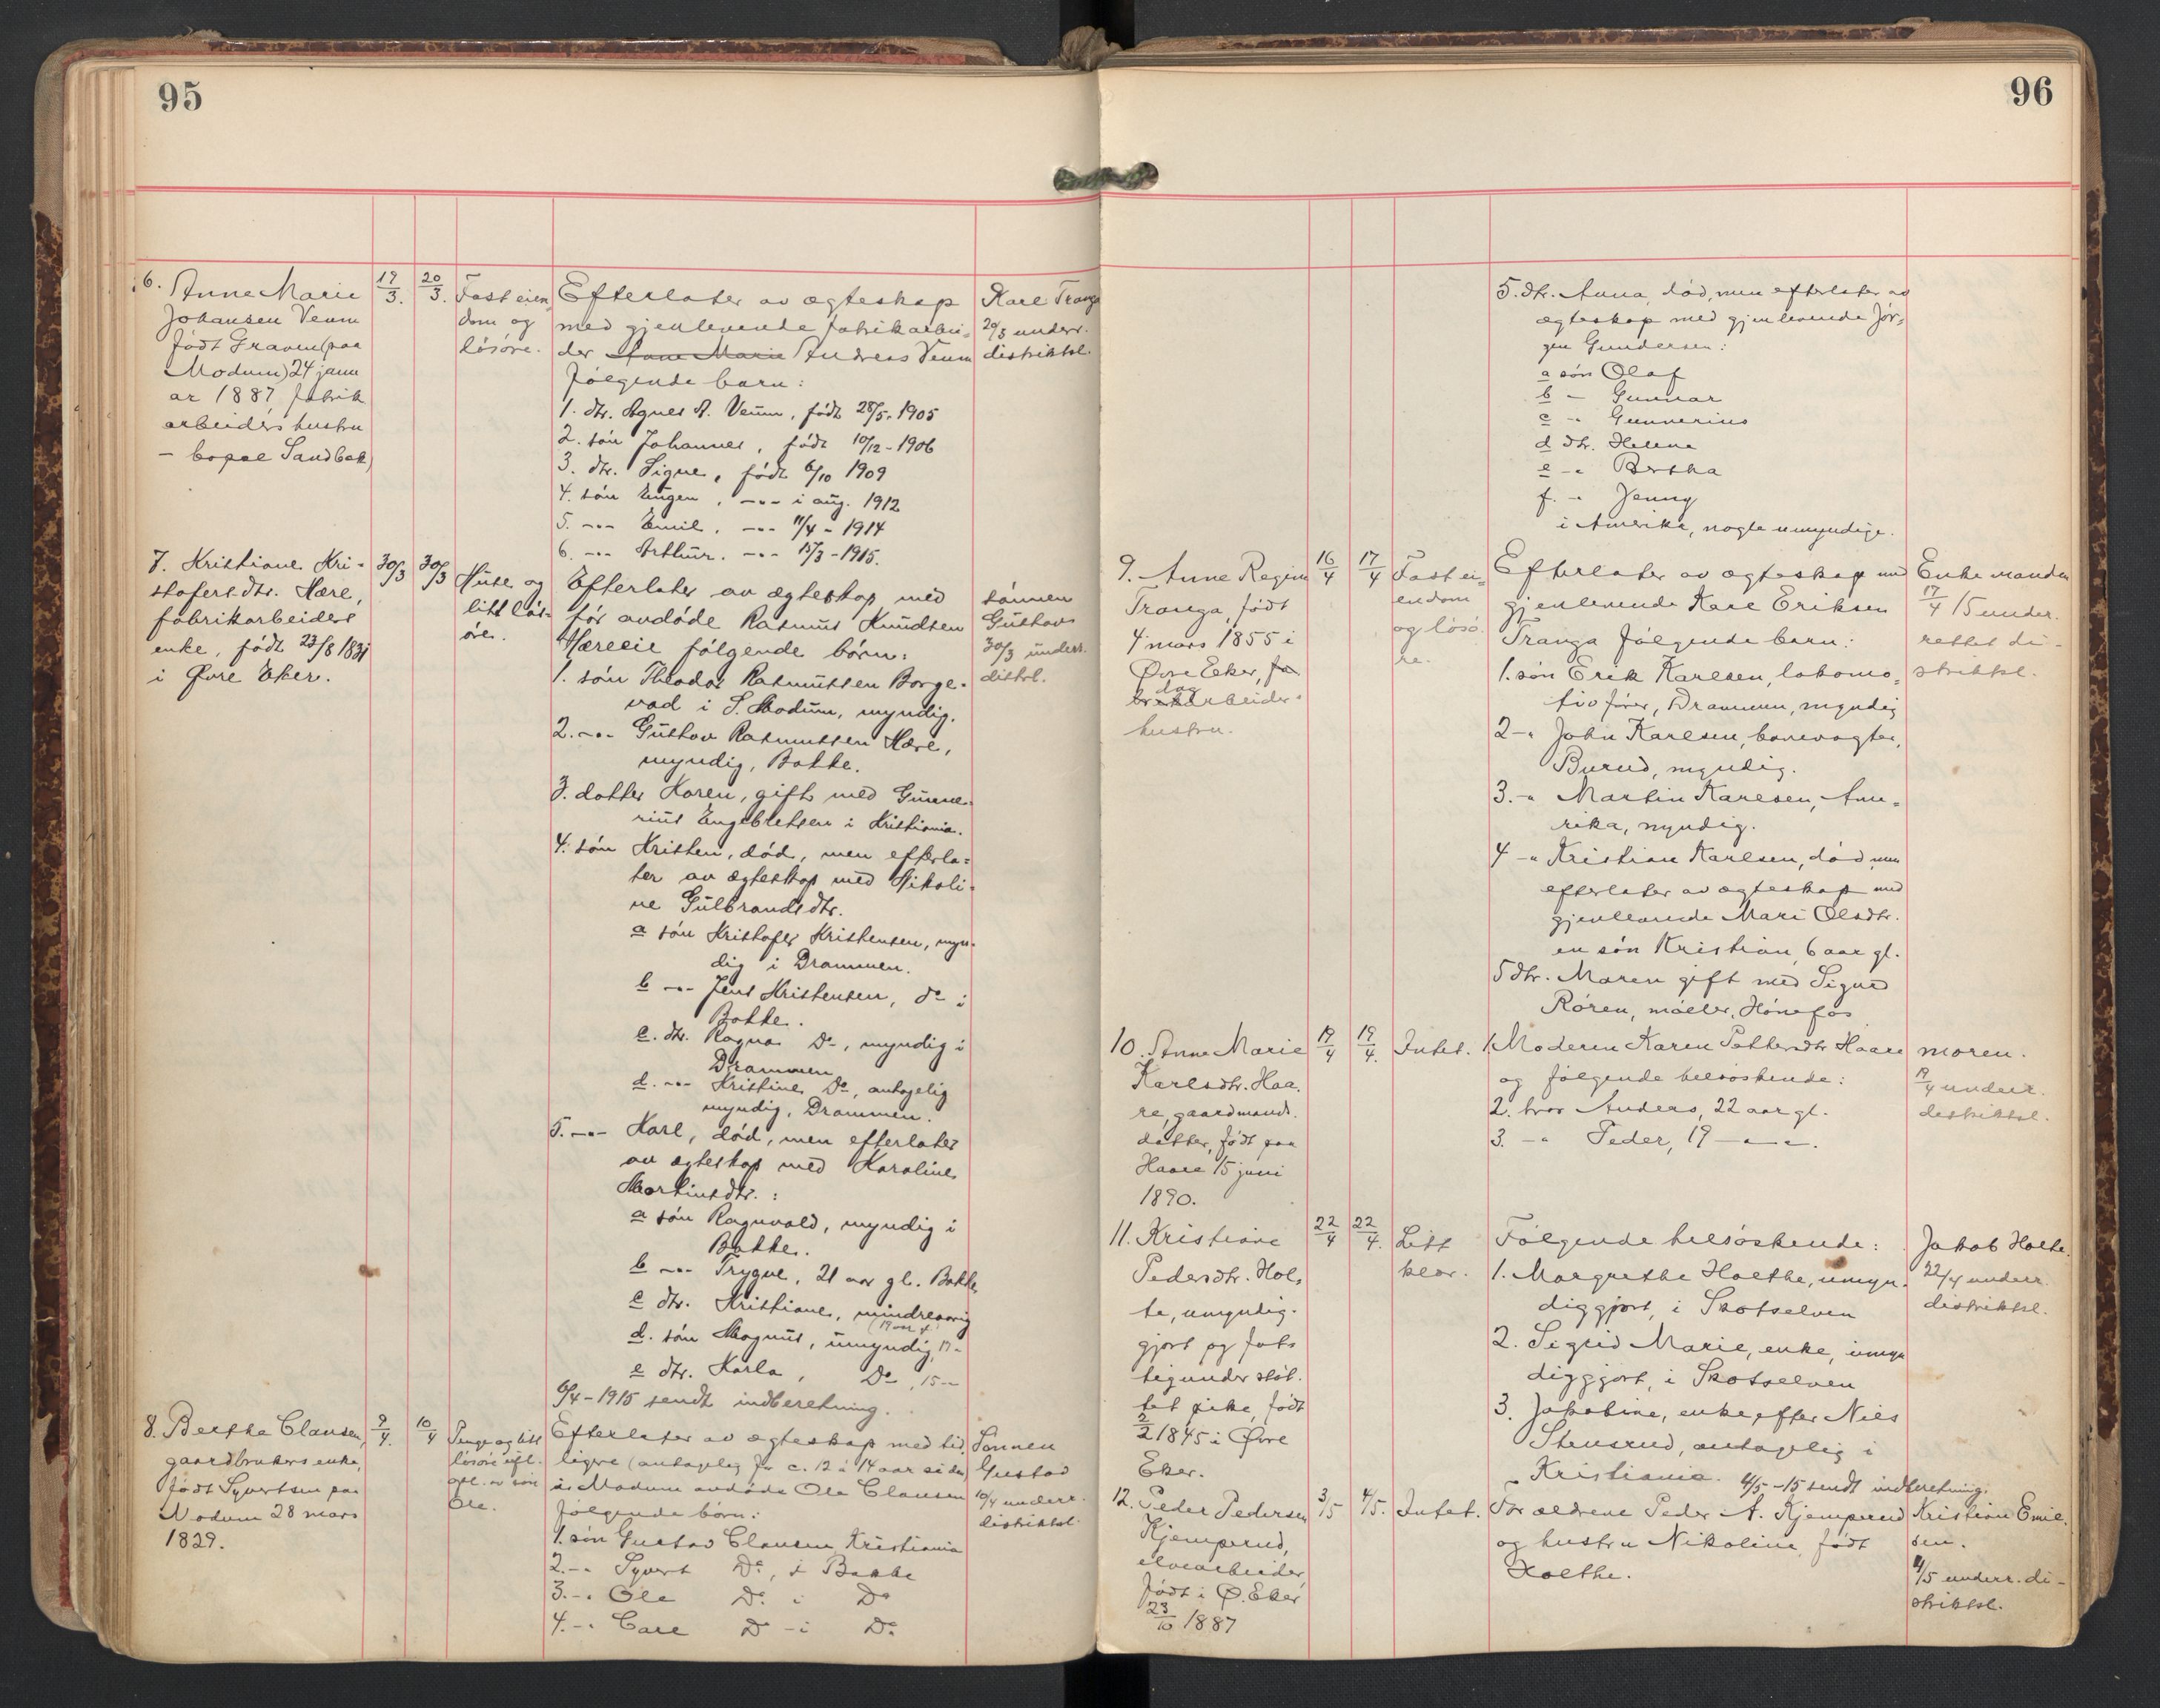 95
6. Anne Marie
Johansen Veum
født Graven (paa
Modum) 24 janu
ar 1887, fabrik
arbeiders hustru
- bopæl Sandbak)
19/3.
20/3.
Fast eien
dom og
løsøre.
Efterlater av ægteskap
med gjenlevende fabrikarbei-
der Anne Marie Andreas Veum
følgende barn:
1. dtr. Agnes A. Veum, født 28/5-1905
2. søn Johannes, født 10/12-1906
3. dtr. Signe, født 6/10 1909
4. søn Eugen, -"- i aug. 1912
5. -"- Emil, -"- 11/4 - 1914
6. -"- Arthur. -"- 15/3-1915.
Karl Tranga
20/3 underr.
distriktsl.
7. Kristiane Kri-
stofersdtr. Hære,
fabrikarbeiders
enke, født 23/8 1831
i Øvre Eker.
30/3
30/3
Huse og
litt løs-
øre.
Efterlater av ægteskap med
før avdøde Rasmus Knudsen
Hære følgende børn:
1. søn Theodor Rasmussen Borge-
vad i S. Modum, myndig.
2. -"- Gustav Rasmussen Hære,
myndig, Bakke.
3. datter Karen, gift med Gunne-
rius Engebretsen i Kristiania.
4. søn Kristen, død, men efterla-
ter av ægteskap med Nikoli-
ne Gulbrandsdtr.
a søn Kristofer Kristensen, myn-
dig i Drammen.
b -"- Jens Kristensen, do i
Bakke.
c. dtr. Ragna Do, myndig i
Drammen
d. -"- Kristine Do, antagelig
myndig, Drammen.
5. -"- Karl, død, men efterlater
av ægteskap med Karoline
Martinsdtr.:
a søn Ragnvald, myndig i
Bakke.
b -"- Trygve, 21 aar gl. Bakke
c dtr. Kristiane, mindreaarig
(19 aar gl.
d. søn Magnus, umyndig, 17 -
e dtr. Karla, Do, 15 -
6/4-1915 sendt indberetning.
sønnen
Gustav
30/3 underr.
distrl.
8. Berthe Clausen,
gaardbrukers enke,
født Syvertsen paa
Modum 28 mars
1829.
9/4.
10/4
Penge og litt
løsøre
Ole.
Efterlater av ægteskap med tid
ligere (antagelig for c. 12 à 14 aar siden)
Modum avdøde Ole Clausen
følgende børn:
1. søn Gustav Clausen, Kristiania
2. -" Syvert Do, i Bakke
3. -" Ole Do. i Do
4. -" Carl Do - i Do.
Sønnen
Gustav
10/4 underr.
distriktsl.
96
5. dtr. Anna, død, men efterlater av
ægteskap med gjenlevende Jør-
gen Gundersen:
a søn Olaf
b - Gunnar
c -" Gunnerius
d dtr. Helene
e -" Bertha
f. -" Jenny
i Amerika, nogle umyndige.
9. Anne Regine
Tranga, født
4 mars 1855 i
Øvre Eker, fa
brik dag arbeider
hustru.
16/4
17/4
Fast ei-
endom
og løsø
re.
Efterlater av ægteskap med
gjenlevende Karl Eriksen
Tranga følgende barn:
1. søn Erik Karlsen, lokomo-
tivfører, Drammen, myndig
2 -" John Karlsen, banevogter,
Burud, myndig.
3. -" Martin Karlsen, Ame-
rika, myndig.
4 -" Kristian Karlsen, død men
efterlater av ægteskap med
gjenlevende Mari Olsdtr.
en søn Kristian, 6 aar gl.
5 dtr. Maren gift med Sigurd
Røren, møller, Hønefos
Enkemanden
17/4 15 under.
rettet di-
striktsl.
10. Anne Marie
Karlsdtr. Haa-
re, gaardmands.
datter, født paa
Haare 15 juni
1890.
19/4
19/4.
Intet.
1. Moderen Karen Pettersdtr Haare
og følgende helsøskende:
2. bror Anders, 22 aar gl.
3. -" Peder, 19 -"-"-.
moren.
19/4 underr.
distriktsl.
11. Kristiane
Pedersdtr. Hol-
te, umyndig-
gjort og fat-
tigunderstøt-
tet pike, født
2/2 1845 i Øvre
Eker.
22/4
22/4.
Litt
klær.
Følgende helsøskende:
1. Margrethe Holthe, umyn-
diggjort, i Skotselven
2. Sigrid Marie, enke, umyn
diggjort, i Skotselven
3. Jakobine, enke efter Niels
Stensrud, antagelig i
Kristiania. 4/5 -15 sendt indberetning.
Jakob Holte.
22/4 underr.
distriktsl.
12. Peder Pedersen
Kjemperud,
elvearbeider,
født i Ø. Eker
23/10 1887
3/5
4/5.
Intet.
Forældrene Peder A. Kjemperud
og hustru Nikoline, født
Holthe.
Kristian Emil-
sen.
4/5 underr. di-
striktsl.